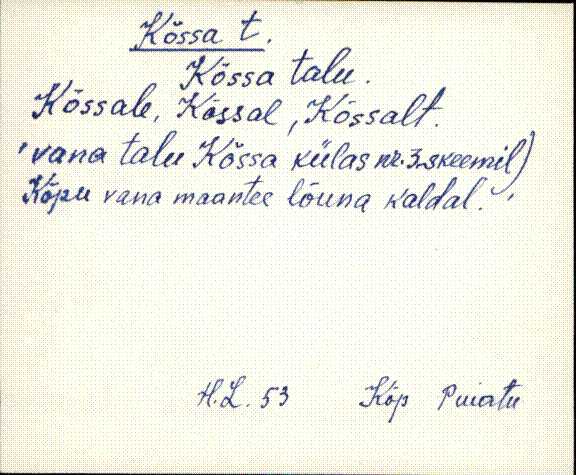 Kõssa t.
Kõssa talu.
Kõssale, Kõssal, Kõssalt.
'vana talu Kõssa külas nr. 3 skeemil)
Kõpu vana maantee lõuna kaldal.'
H.L. 53 Kõp Puiatu